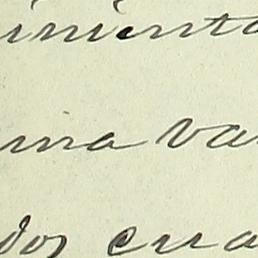 imiento
una va
dos cua